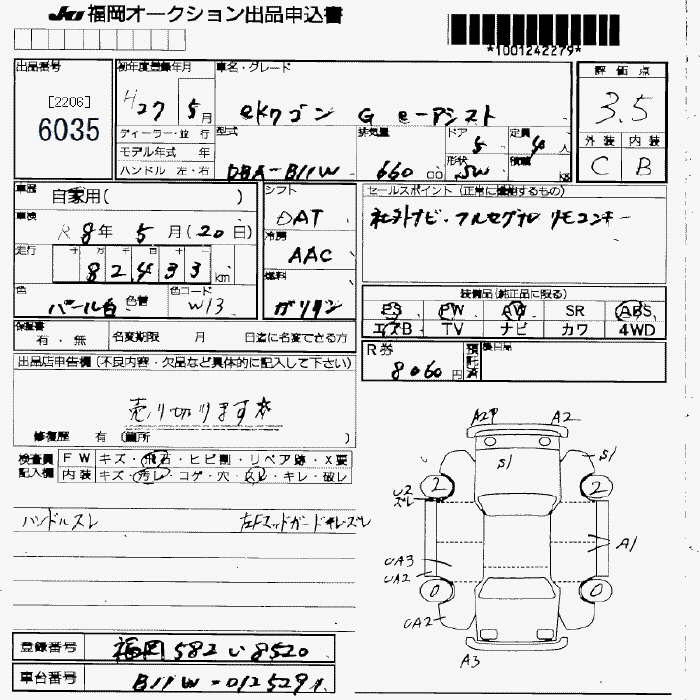 JU 福岡オークション出品申込書
*1001242279*
出品番号
[2206]
6035
初年度登録年月
H27 5月
車名・グレード
eKワゴン G e-アシスト
評価点
3.5
外装 内装
C B
ディーラー・並行
モデル年式 年
ハンドル 左・右
型式
DBA-B11W
排気量
660 cc
ドア
5
形状
5W
定員
4人
積載
kg
車歴
自家用( )
車検
R8年 5月(20日)
走行
十 万 千 百 十 一
82,433 km
色
パール白
色替
色コード
W13
シフト
DAT
冷房
AAC
燃料
ガソリン
セールスポイント (正常に機動するもの)
社外ナビ・フルセグTV リモコンキー
装備品(純正品に限る)
PS PW AW SR ABS
エアB TV ナビ カワ 4WD
保証書
有・無
名変期限 月 日迄に名変できる方
R券
8060円
預託済
出品店申告欄(不良内容・欠品など具体的に記入して下さい)
売り切ります☆
修復歴 有(箇所 )
検査員記入欄
FW キズ・飛石・ヒビ割・リペア跡・X要
内装 キズ・汚レ・コゲ・穴・スレ・キレ・破レ
ハンドルスレ
左Fマッドガードキレ・ズレ
A2P A2
S1 S1
2 2
U2
ズレ
A1
UA3
UA2
0 0
UA2
A3
登録番号
福岡 582 い 8520
車台番号
B11W-0125291